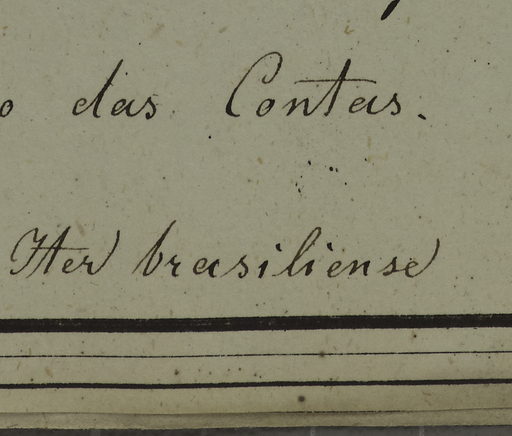 o das Contas.
Iter brasiliense